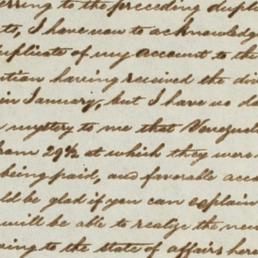 erring to the preceding dupli
ts, I have now to acknowledg
uplicate of my account to the
ention having received the di
in January, but I have no da
mystery to me that Venezuel
from 29½ at which they were
being paid, and favorable acco
ld be glad if you can explain
will be able to realize the new
ing to the state of affairs here